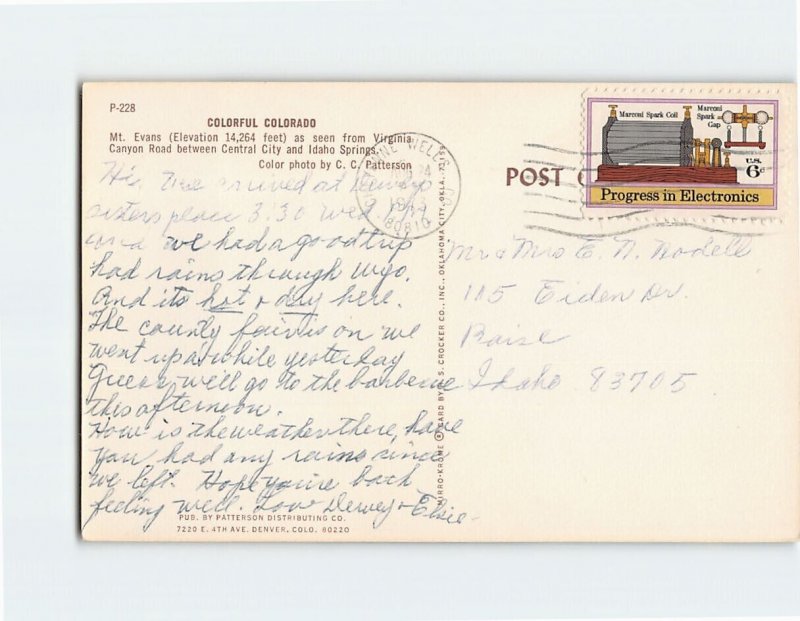 P-228
COLORFUL COLORADO
Mt. Evans (Elevation 14,264 feet) as seen from Virginia
Canyon Road between Central City and Idaho Springs.
Color photo by C. C. Patterson
Hi. We arrived at Deweys
sisters place 3:30 Wed.
and we had a good trip
had rains through Wyo.
And its hot & dry here.
The county fair is on we
went up awhile yesterday
Guess we'll go to the barbecue
this afternoon.
How is the weather there, have
you had any rains since
we left. Hope you're back
feeling well. Love Dewey & Elsie
PUB. BY PATTERSON DISTRIBUTING CO.
7220 E. 4TH AVE. DENVER, COLO. 80220
MIRRO-KROME ® CARD BY H. S. CROCKER CO., INC., OKLAHOMA CITY, OKLA. 73159
POST
Marconi Spark Coil
Marconi
Spark
Gap
U.S.
6c
Progress in Electronics
80810
Mr & Mrs E. N. Nodell
115 Eiden Dr.
Boise
Idaho 83705